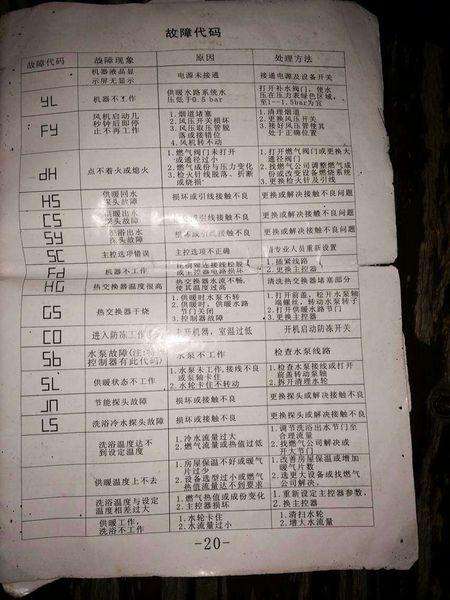 故障代码
故障代码 故障现象 原因 处理方法
机器液晶显示屏无显示 电源未接通 接通电源及设备开关
YL 机器不工作 供暖水路系统水压低于0.5bar 打开补水阀门,使水压在压力表绿色区域,至1—1.5bar为宜
FY 风机启动几秒钟后即停止不再工作
1.烟道堵塞
2.风压开关损坏
3.风压取压管脱落或接错位
4.风机转不动
1.清理烟道
2.更换风压开关
3.接好风压管使其处于正确位置
dH 点不着火或熄火
1.燃气阀门未打开或通径过小
2.燃气成份与压力变化
3.检火针线脱落、折断或烧损
1.打开燃气阀门或更换大通径阀门
2.找燃气公司调整燃气成份或改变设备燃烧系统
3.更换检火针及引线
HS 供暖回水探头故障 损坏或引线接触不良 更换或解决接触不良问题
CS 供暖出水探头故障 损坏或引线接触不良 更换或解决接触不良问题
SY 洗浴出水探头故障 损坏或引线接触不良 更换或解决接触不良问题
SC 主控选项错误 主控选项不正确 专业人员重新设置
Fd 机器不工作 主控器电路损坏
1.插紧线路
2.更换主控器
HG 热交换器温度很高 热交换器水流不畅,使其温度过高 清洗热交换器堵塞部分
GS 热交换器干烧
1.供暖时水泵不转
2.供暖时供暖水路节门关闭
3.控制器故障
1.打开前盖,松开水泵轴端螺丝,转动水泵转子
2.打开供暖水路节门
3.更换主控器
CO 进入防冻工作 开机器,室温过低 开机启动防冻开关
Sb 水泵故障(注: 控制器有此代码) 水泵不工作 检查水泵线路
SL 供暖状态不工作
1.水泵未工作,接线不良或泵轴卡住
2.水轮卡住不转动
1.检查水泵接线或打开前盖转动泵轴
2.拆开清理水轮
JN 节能探头故障 损坏或接触不良 更换探头或解决接触不良
LS 洗浴冷水探头故障 损坏或接触不良 更换探头或解决接触不良
洗浴温度达不到设定温度
1.冷水流量过大
2.燃气流量或热值过低
1.调节洗浴出水节门至合理流量
2.找燃气公司解决或开大节门
供暖温度上不去
1.房屋保温不好或暖气片过少
2.设备选型过小或燃气热值流量达不到要求
1.改善房屋保温或增加暖气片数
2.选更大设备或找燃气公司解决。
洗浴温度与设定温度相差过大
1.燃气热值或成份变化
2.主控器损坏
1.重新设定主控器参数,
2.换主控器
供暖工作,洗浴不工作
1.水轮卡住
2.水流量过小
1.清扫水轮
2.增大水流量
-20-